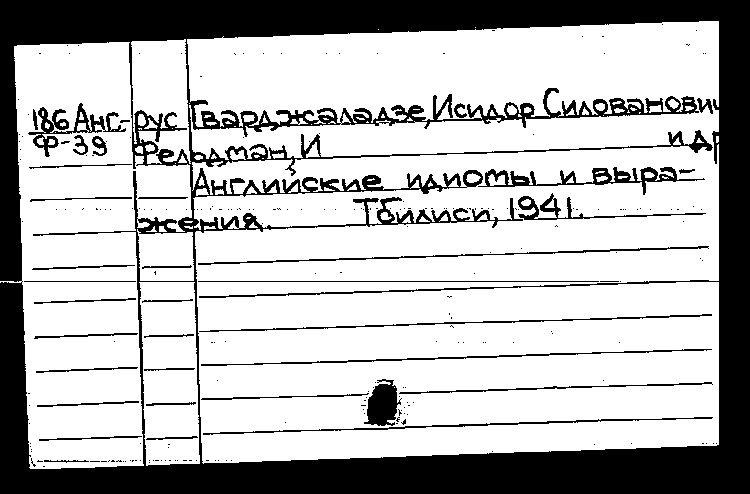 186 Анг.-рус Гварджаладзе, Исидор Силованович
Ф-39 Фельдман, И и др
Английские идиомы и выра-
жения. Тбилиси, 1941.